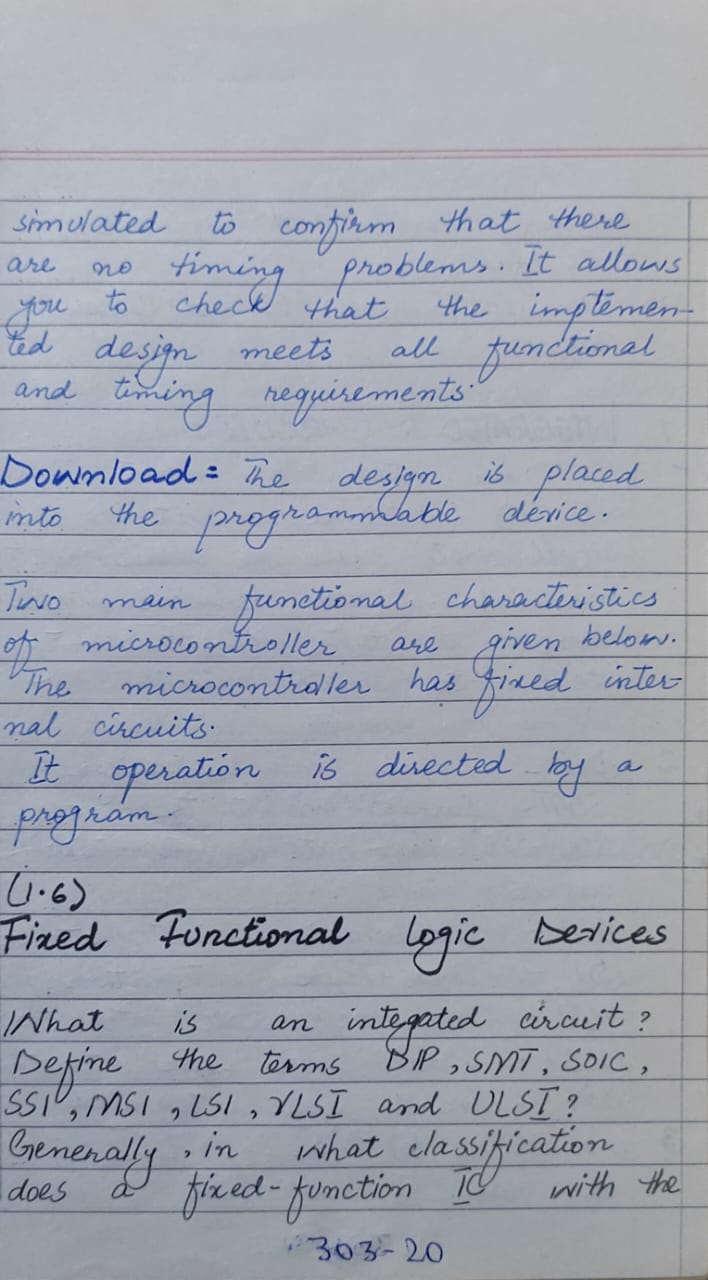 simulated to confirm that there
are no timing problems. It allows
you to check that the implemen-
ted design meets all functional
and timing requirements.
Download = The design is placed
into the programmable device.
Two main functional characteristics
of microcontroller are given below.
The microcontroller has fixed inter-
nal circuits.
It operation is directed by a
program.
(1.6)
Fixed Functional Logic Devices
What is an integated circuit?
Define the terms DIP, SMT, SOIC,
SSI, MSI, LSI, VLSI and ULSI?
Generally, in what classification
does a fixed-function IC with the
303-20